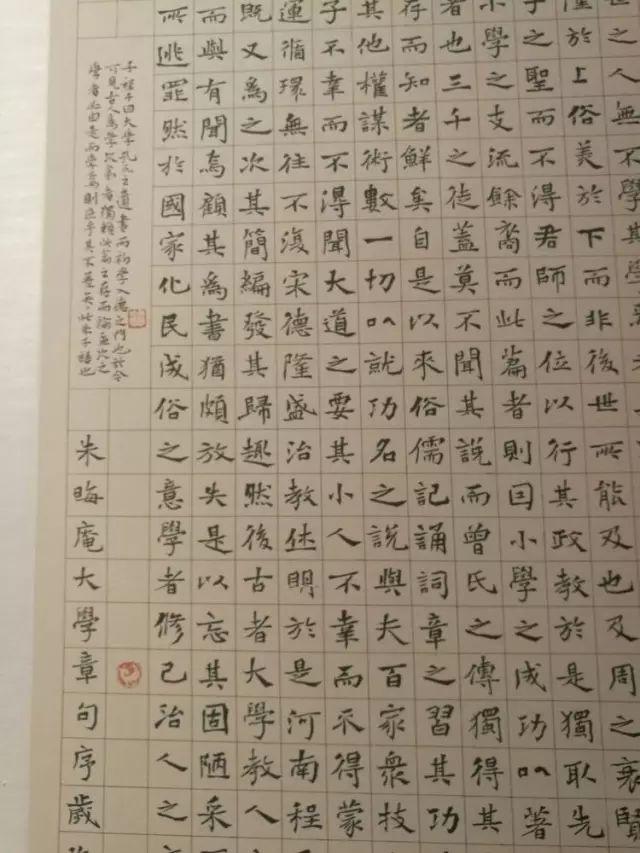 世之人無不學其學
隆於上俗美於下而非後世所能及也及周之衰賢
子之聖而不得君師之位以行其政教於是獨取先
小學之支流餘裔而此篇者則因小學之成功以著
者也三千之徒蓋莫不聞其說而曾氏之傳獨得其
存而知者鮮矣自是以來俗儒記誦詞章之習其功
其他權謀術數一切以就功名之說與夫百家衆技
子不幸而不得聞大道之要其小人不幸而不得蒙
運循環無往不復宋德隆盛治教休明於是河南程
既又為之次其簡編發其歸趣然後古者大學教人
而與有聞焉顧其為書猶頗放失是以忘其固陋采
所逃罪然於國家化民成俗之意學者修己治人之
子程子曰大學孔氏之遺書而初學入德之門也於今
可見古人為學次第者獨賴此篇之存而論孟次之
學者必由是而學焉則庶乎其不差矣此朱子語也
朱晦庵大學章句序歲